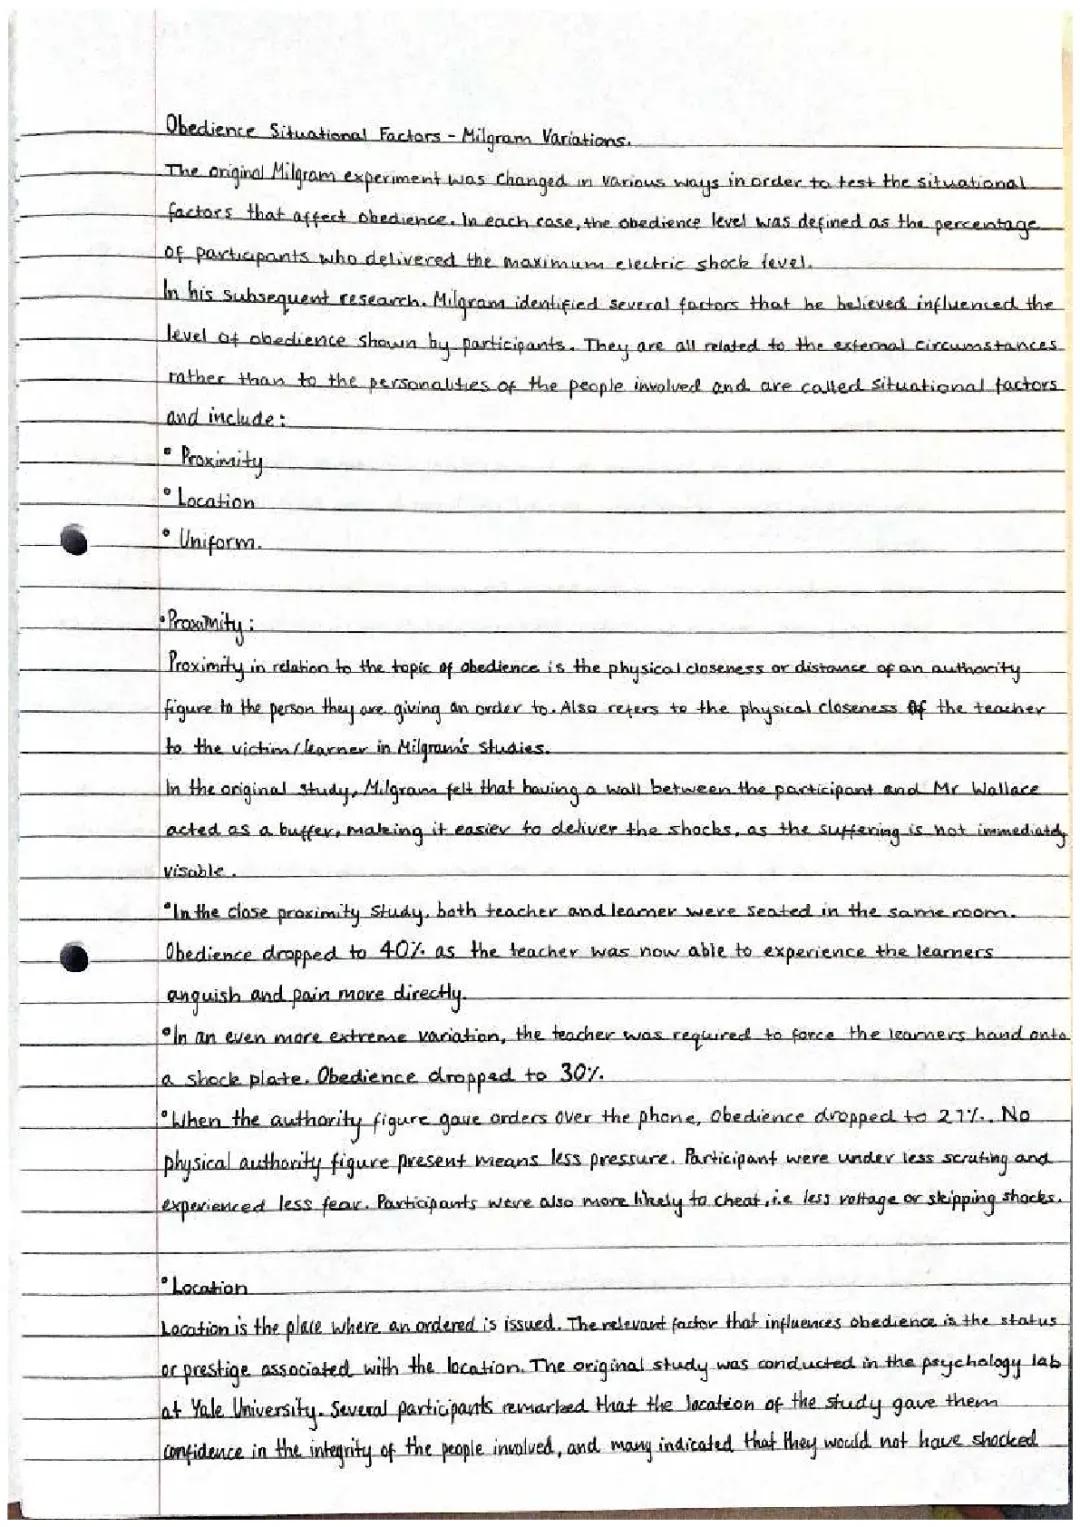 Obedience Situational Factors - Milgram Variations.
The original Milgram experiment was changed in various ways in order to test the situational
factors that affect obedience. In each case, the obedience level was defined as the percentage
of participants who delivered the maximum electric shock level.
In his subsequent research. Milgram identified several factors that he believed influenced the
level of obedience shown by participants. They are all related to the external circumstances
rather than to the personalities of the people involved and are called situational factors
and include:
• Proximity
• Location
• Uniform.
• Proximity:
Proximity in relation to the topic of obedience is the physical closeness or distance of an authority
figure to the person they are giving an order to. Also refers to the physical closeness of the teacher
to the victim/learner in Milgram's studies.
In the original study, Milgram felt that having a wall between the participant and Mr Wallace
acted as a buffer, making it easier to deliver the shocks, as the suffering is not immediately
visable.
• In the close proximity study, both teacher and learner were seated in the same room.
Obedience dropped to 40% as the teacher was now able to experience the learners
anguish and pain more directly.
• In an even more extreme variation, the teacher was required to force the learners hand onto
a shock plate. Obedience dropped to 30%.
• When the authority figure gave orders over the phone, obedience dropped to 21%. No
physical authority figure present means less pressure. Participant were under less scrutiny and
experienced less fear. Participants were also more likely to cheat, i.e less voltage or skipping shocks.
• Location
Location is the place where an ordered is issued. The relevant factor that influences obedience is the status
or prestige associated with the location. The original study was conducted in the psychology lab
at Yale University. Several participants remarked that the location of the study gave them
confidence in the integrity of the people involved, and many indicated that they would not have shocked